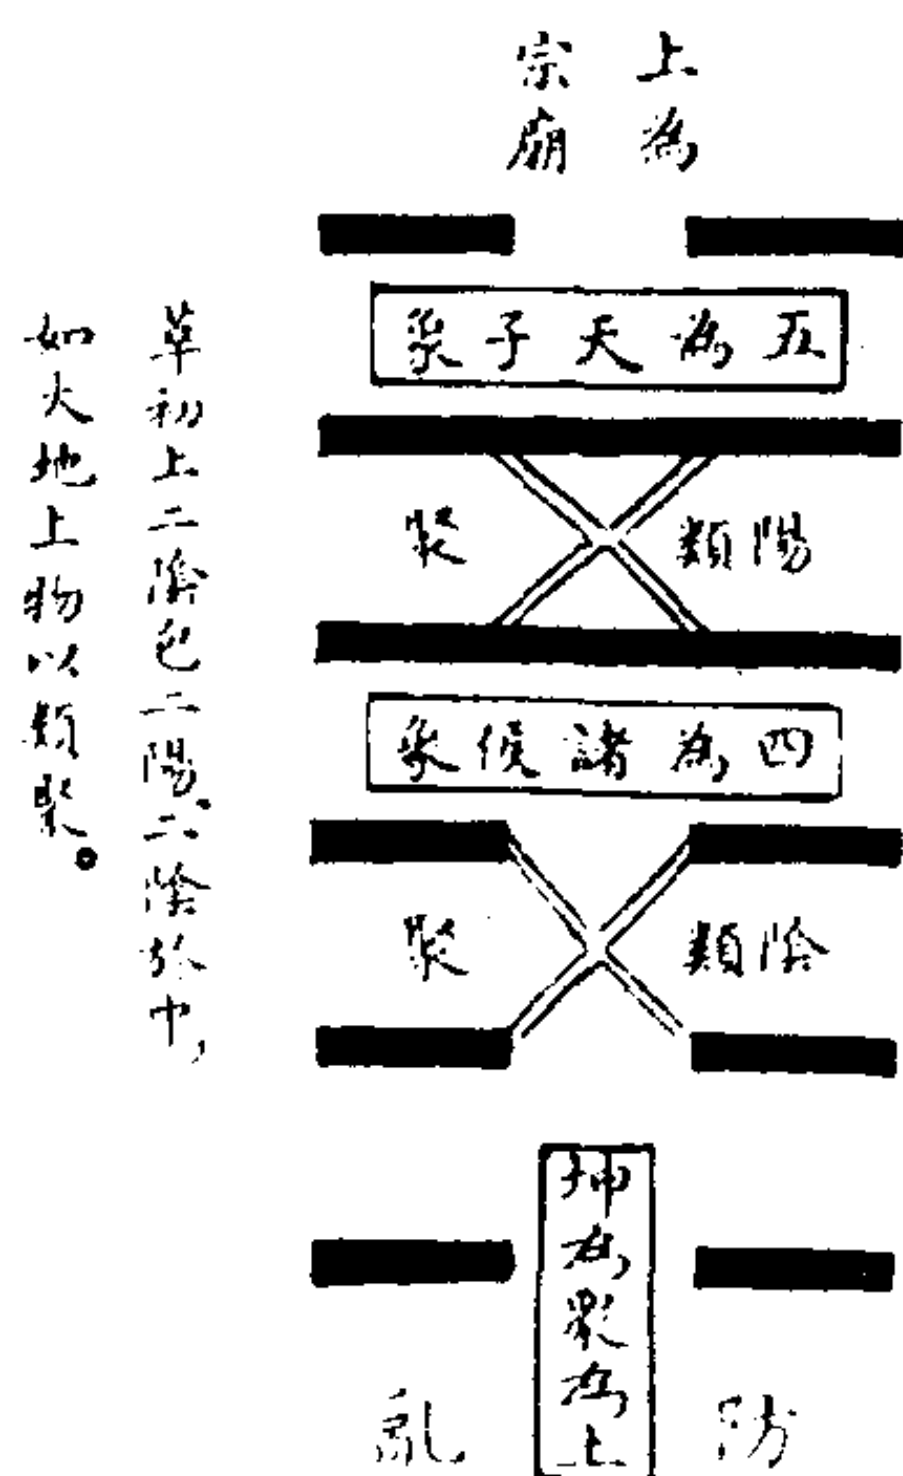 上為
宗廟
五為天子象
陽類聚
四為諸侯象
陰類聚
坤為眾為土
防亂
萃初上二陰包二陽、二陰於中，
如大地上物以類聚。